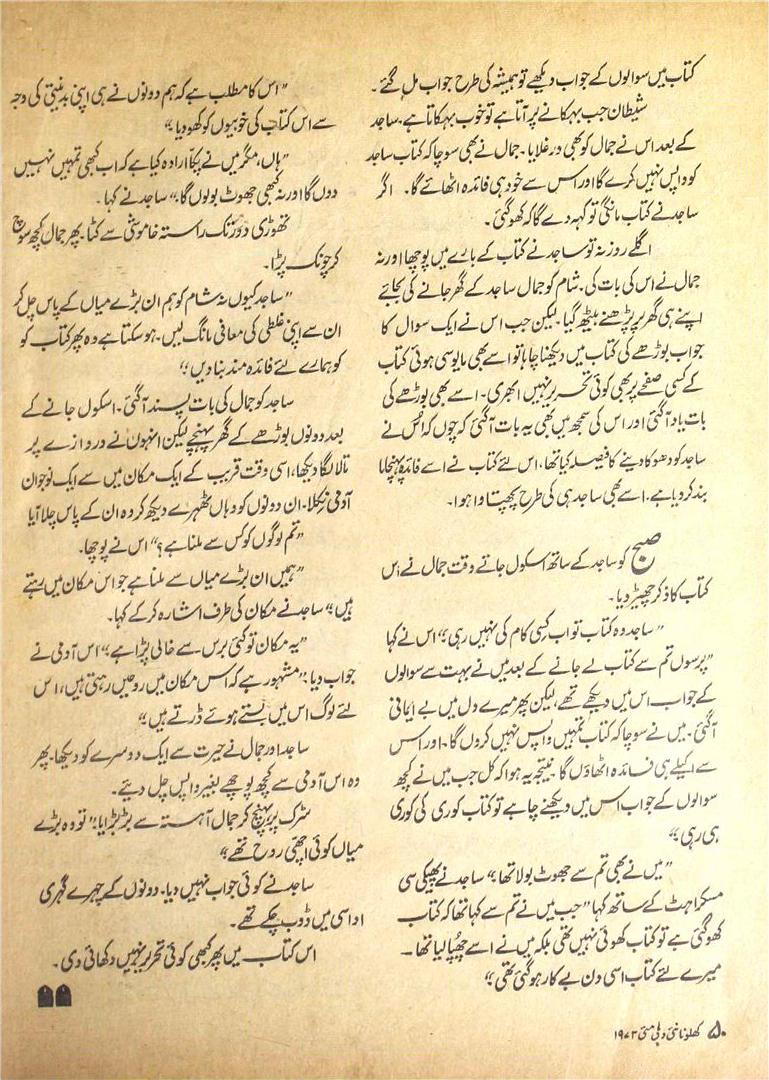 کتاب میں سوالوں کے جواب دیکھے تو ہمیشہ کی طرح جواب مل گئے۔
شیطان جب بہکانے پر آتا ہے تو خوب بہکاتا ہے۔ ساجد
کے بعد اس نے جمال کو بھی ورغلایا۔ جمال نے بھی سوچا کہ کتاب ساجد
کو واپس نہیں کرے گا اور اس سے خود ہی فائدہ اٹھائے گا۔ اگر
ساجد نے کتاب مانگی تو کہہ دے گا کہ کھو گئی۔
اگلے روز نہ تو ساجد نے کتاب کے بارے میں پوچھا اور نہ
جمال نے اس کی بات کی۔ شام کو جمال ساجد کے گھر جانے کی بجائے
اپنے ہی گھر پر پڑھنے بیٹھ گیا۔ لیکن جب اس نے ایک سوال کا
جواب بوڑھے کی کتاب میں دیکھنا چاہا تو اسے بھی مایوسی ہوئی کتاب
کے کسی صفحے پر بھی کوئی تحریر نہیں ابھری۔ اسے بھی بوڑھے کی
بات یاد آ گئی اور اس کی سمجھ میں بھی یہ بات آ گئی کہ چوں کہ اس نے
ساجد کو دھوکا دینے کا فیصلہ کیا تھا، اس لئے کتاب نے اسے فائدہ پہنچانا
بند کر دیا ہے۔ اسے بھی ساجد ہی کی طرح پچھتاوا ہوا۔
صبح کو ساجد کے ساتھ اسکول جاتے وقت جمال نے اس
کتاب کا ذکر چھیڑ دیا۔
"ساجد وہ کتاب تو اب کسی کام کی نہیں رہی" اس نے کہا
"پرسوں تم سے کتاب لے جانے کے بعد میں نے بہت سے سوالوں
کے جواب اس میں دیکھے تھے، لیکن پھر میرے دل میں بے ایمانی
آگئی۔ میں نے سوچا کہ کتاب تمہیں واپس نہیں کروں گا۔ اور اس
سے اکیلے ہی فائدہ اٹھاؤں گا۔ نتیجہ یہ ہوا کہ کل جب میں نے کچھ
سوالوں کے جواب اس میں دیکھنے چاہے تو کتاب کوری کی کوری
ہی رہی"
"میں نے بھی تم سے جھوٹ بولا تھا" ساجد نے پھیکی سی
مسکراہٹ کے ساتھ کہا "جب میں نے تم سے کہا تھا کہ کتاب
کھو گئی ہے تو کتاب کھوئی نہیں تھی بلکہ میں نے اسے چھپا لیا تھا ۔
میرے لئے کتاب اسی دن بے کار ہو گئی تھی"
"اس کا مطلب ہے کہ ہم دونوں نے ہی اپنی بدنیتی کی وجہ
سے اس کتاب کی خوبیوں کو کھو دیا"
"ہاں، مگر میں نے پکا ارادہ کیا ہے کہ اب کبھی تمہیں نہیں
دوں گا اور نہ کبھی جھوٹ بولوں گا" ساجد نے کہا۔
تھوڑی دور تک راستہ خاموشی سے کٹا۔ پھر جمال کچھ سوچ
کر چونک پڑا۔
"ساجد کیوں نہ شام کو ہم ان بڑے میاں کے پاس چل کر
ان سے اپنی غلطی کی معافی مانگ لیں۔ ہو سکتا ہے وہ پھر کتاب کو
کو ہمارے لئے فائدہ مند بنا دیں"
ساجد کو جمال کی بات پسند آگئی۔ اسکول جانے کے
بعد دونوں بوڑھے کے گھر پہنچے لیکن انہوں نے دروازے پر
تالا لگا دیکھا، اسی وقت قریب کے ایک مکان میں سے ایک نوجوان
آدمی نکلا۔ ان دونوں کو وہاں ٹھہرے دیکھ کر وہ ان کے پاس چلا آیا
"تم لوگوں کو کس سے ملنا ہے؟" اس نے پوچھا۔
"ہمیں ان بڑے میاں سے ملنا ہے جو اس مکان میں رہتے
ہیں" ساجد نے مکان کی طرف اشارہ کر کے کہا۔
"یہ مکان تو کئی برس سے خالی پڑا ہے" اس آدمی نے
جواب دیا: "مشہور ہے کہ اس مکان میں روحیں رہتی ہیں، اس
لئے لوگ اس میں بستے ہوئے ڈرتے ہیں"
ساجد اور جمال نے حیرت سے ایک دوسرے کو دیکھا۔ پھر
وہ اس آدمی سے کچھ پوچھے بغیر واپس چل دیئے۔
سڑک پر پہنچ کر جمال آہستہ سے بڑبڑایا: "تو وہ بڑے
میاں کوئی اچھی روح تھے"
ساجد نے کوئی جواب نہیں دیا۔ دونوں کے چہرے گہری
اداسی میں ڈوب چکے تھے۔
اس کتاب میں پھر کبھی کوئی تحریر نہیں دکھائی دی۔
۵۰ کھلونا نئی دہلی مئی ۱۹۷۳